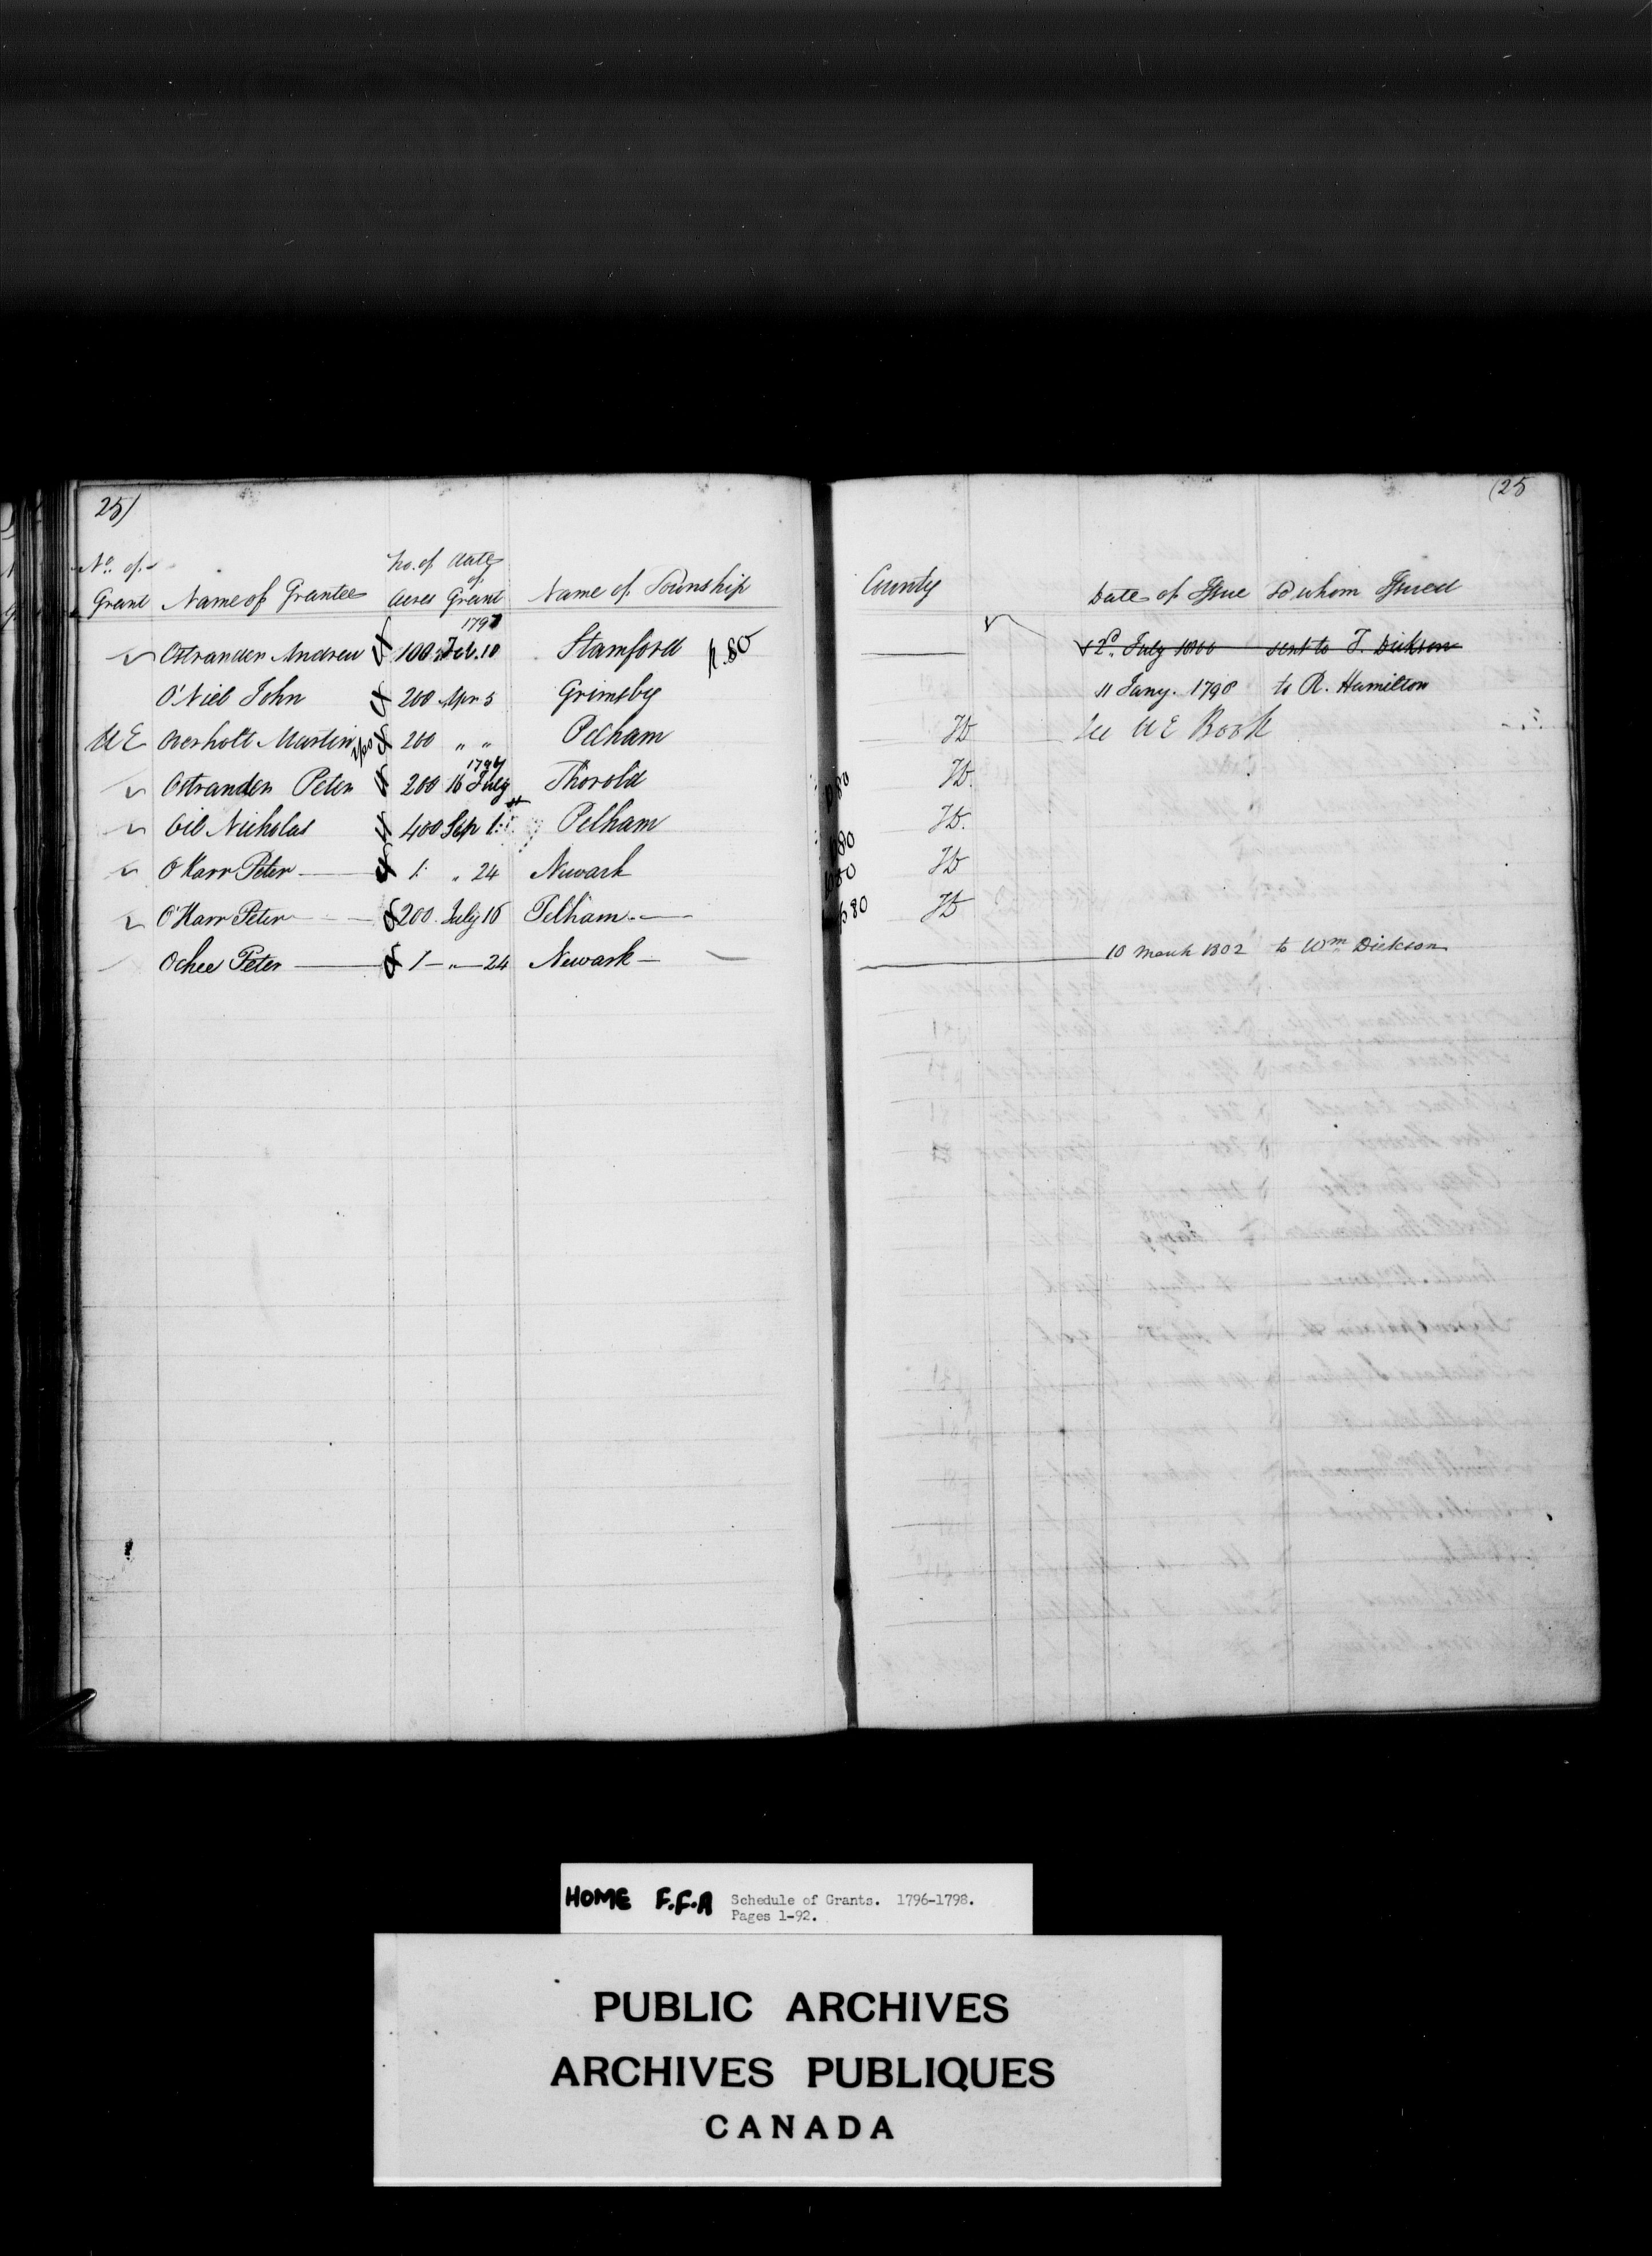 25)
(25
No. of Grant Name of Grantee No. of Acres Date of Grant Name of Township County Date of Issue To whom Issued
1797
Ostrander Andrew 100 Feb. 10 Stamford p.80 2d. July 1800 sent to T. Dickson
O'Niel John 200 Apr 5 Grimsby 11 Jany. 1798 to R. Hamilton
UE Overholt Martin 200 " " Pelham See UE Book
1797
Ostrander Peter 200 16 July Thorold p80
Oil Nicholas 400 Sep 1 Pelham p80
O'Karr Peter 1 " 24 Newark p80
O'Karr Peter 200 July 16 Pelham p80
Ochee Peter 1 " 24 Newark 10 March 1802 to Wm Dickson
HOME F.F.A Schedule of Grants. 1796-1798.
Pages 1-92.
PUBLIC ARCHIVES
ARCHIVES PUBLIQUES
CANADA